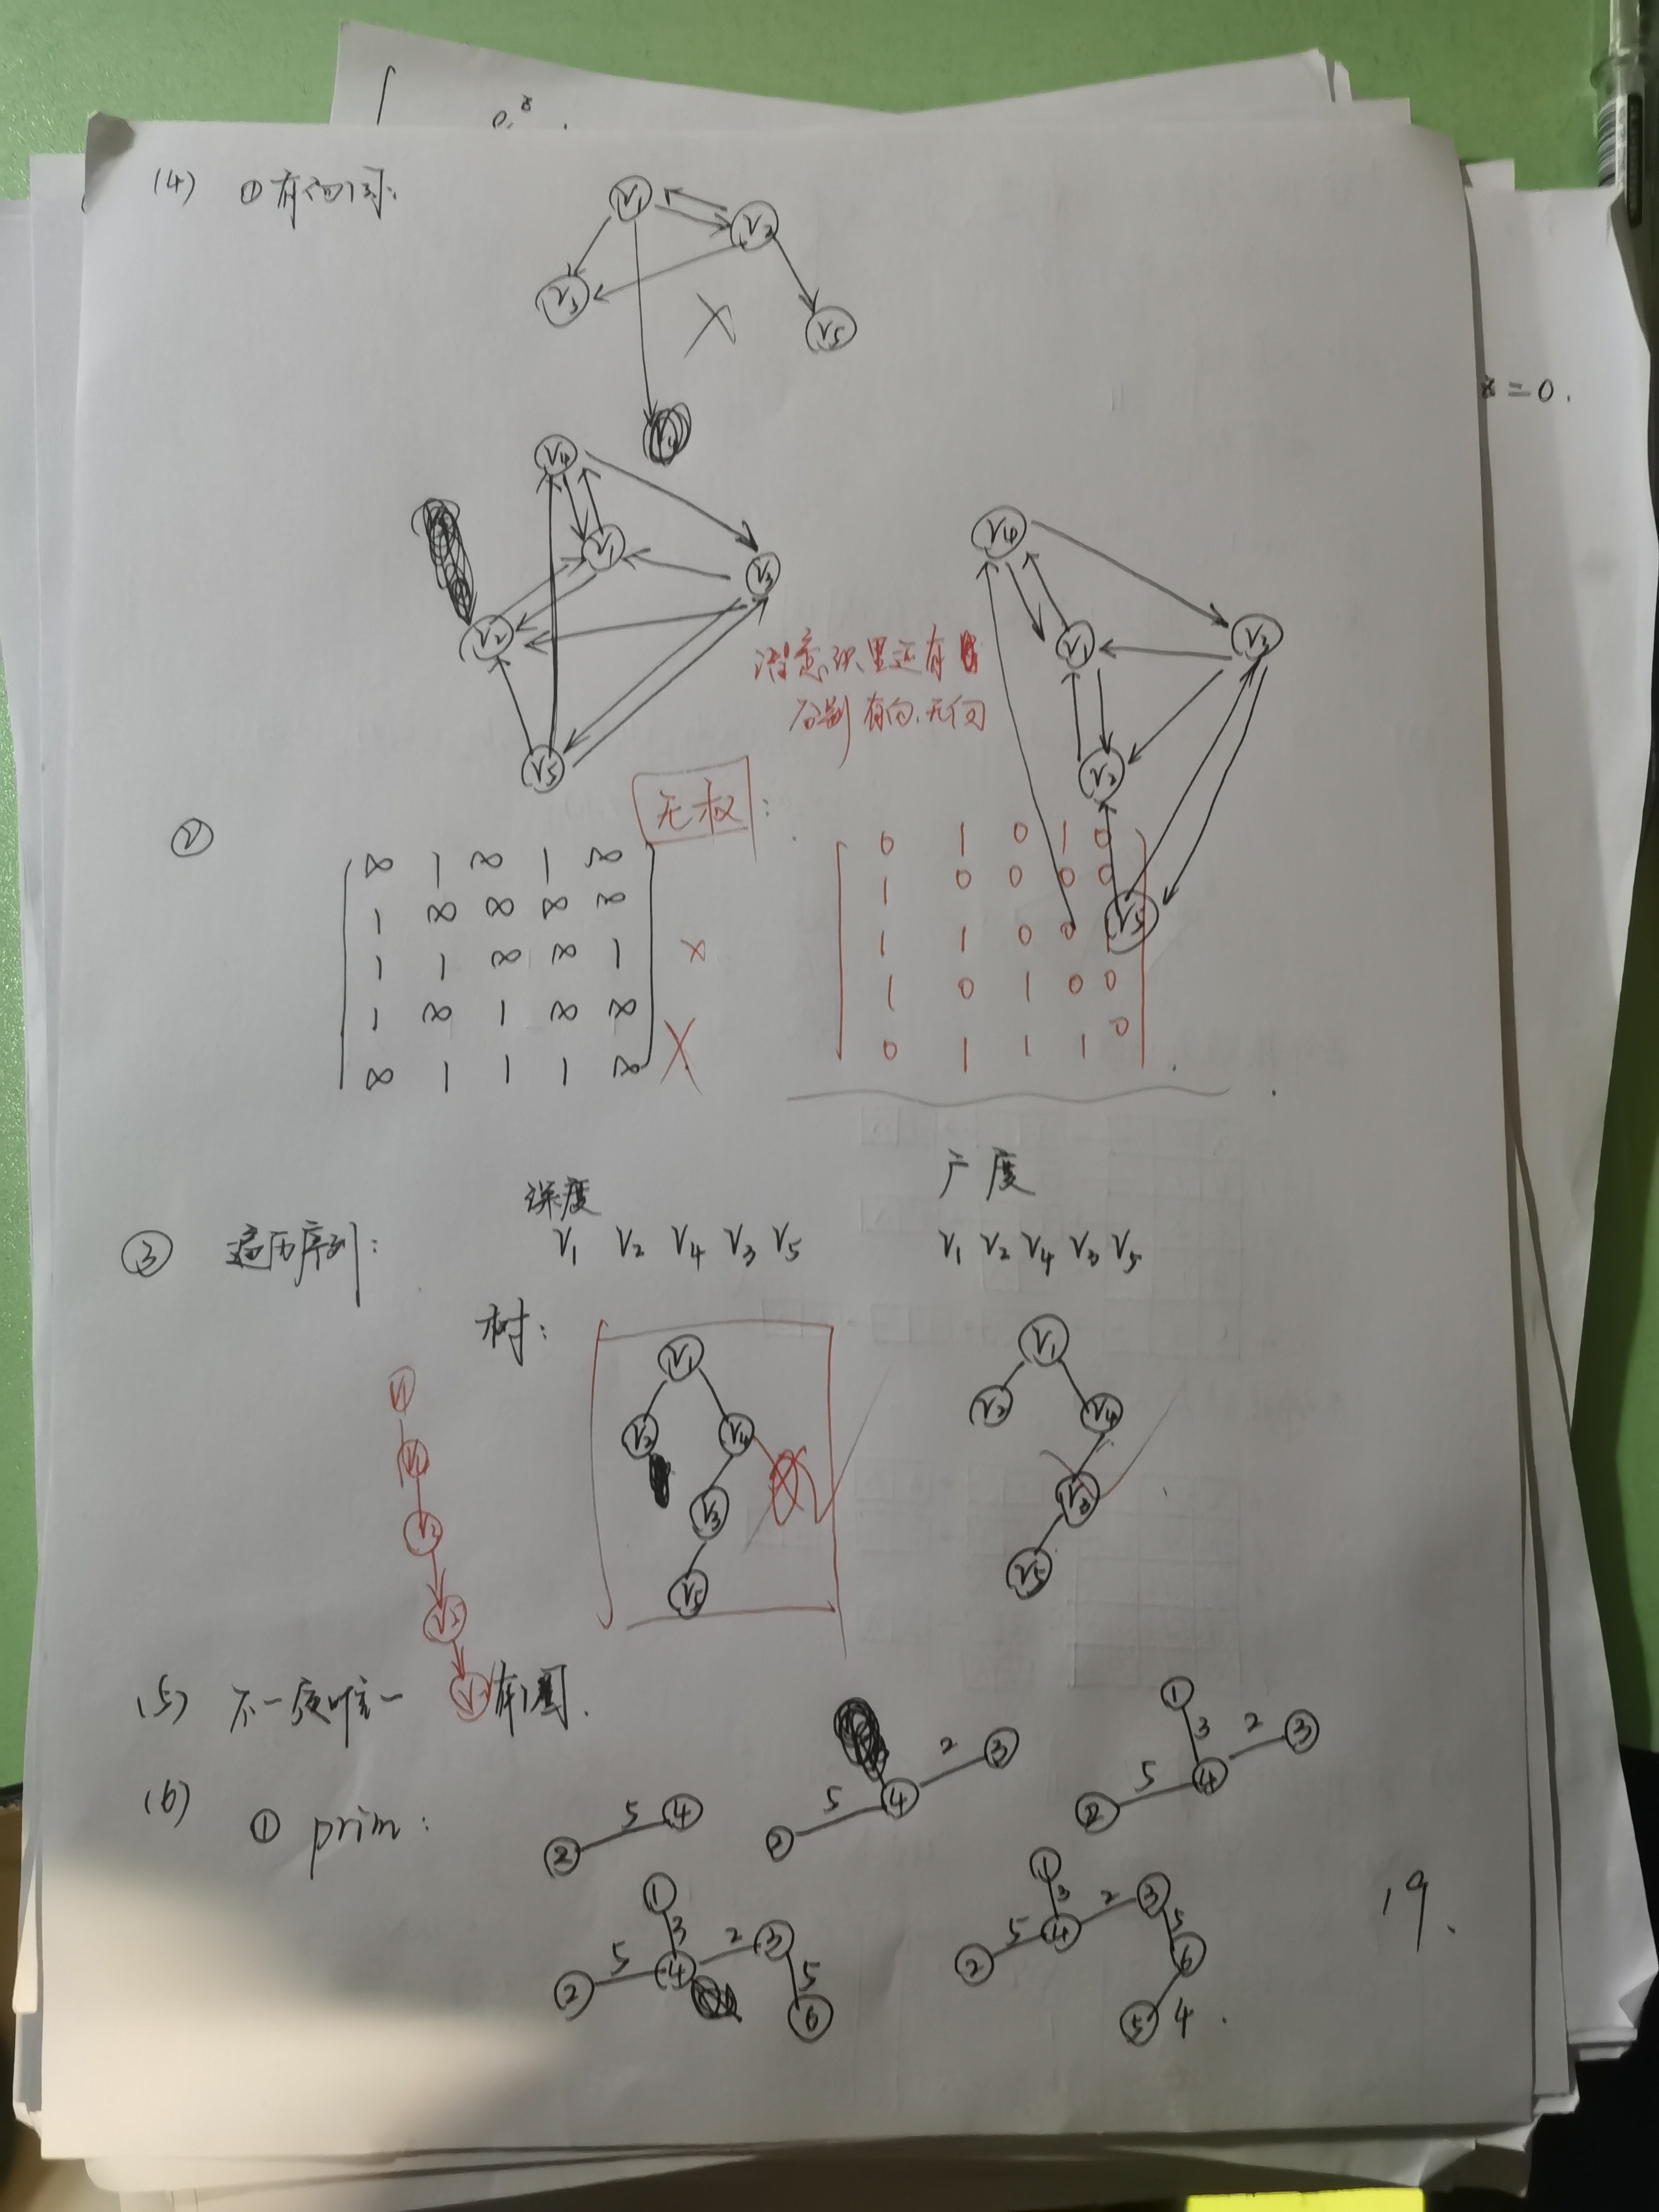 (4) ①有向图:
V1
V2
V3
V5
x=0.
V4
V1
V3
V2
V5
V4
V1
V3
V2
V5
潜意识里还有
分割 有向.无向
②
无权:
∞ 1 ∞ 1 ∞
1 ∞ ∞ ∞ ∞
1 1 ∞ ∞ 1
1 ∞ 1 ∞ ∞
∞ 1 1 1 ∞
×
0 1 0 1 0
1 0 0 0 0
1 1 0 0 1
1 0 1 0 0
0 1 1 1 0
深度 广度
③ 遍历序列: V1 V2 V4 V3 V5 V1 V2 V4 V3 V5
树:
V1
V2 V4
V3
V5
V1
V2 V4
V3
V5
(5) 不一定唯一 有图.
(6) ① prim:
5
② ④
2 ③
5 ④
②
①
3 2 ③
5 ④
②
①
3 2 ③
5 ④
② 5
⑥
①
3 2 ③
5 ④ 5
② ⑥
⑤ 4.
19.